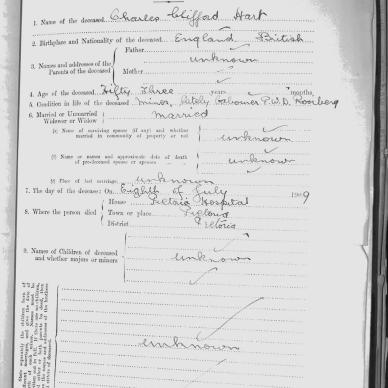 1. Name of the deceased Charles Clifford Hart
2. Birthplace and Nationality of the deceased England British
3. Names and addresses of the Parents of the deceased
Father
unknown
Mother
4. Age of the deceased Fifty Three years months,
5. Condition in life of the deceased Miner, lately P.W.D.
6. Married or Unmarried Widower or Widow married
(e) Name of surviving spouse (if any) and whether married in community of property or not unknown
(f) Name or names and approximate date of death of pre-deceased spouse or spouses unknown
(g) Place of last marriage unknown
7. The day of the decease: On Eighth of July 1909
8. Where the person died
House Hospital
Town or place Pretoria
District Pretoria
9. Names of Children of deceased and whether majors or minors
unknown
unknown